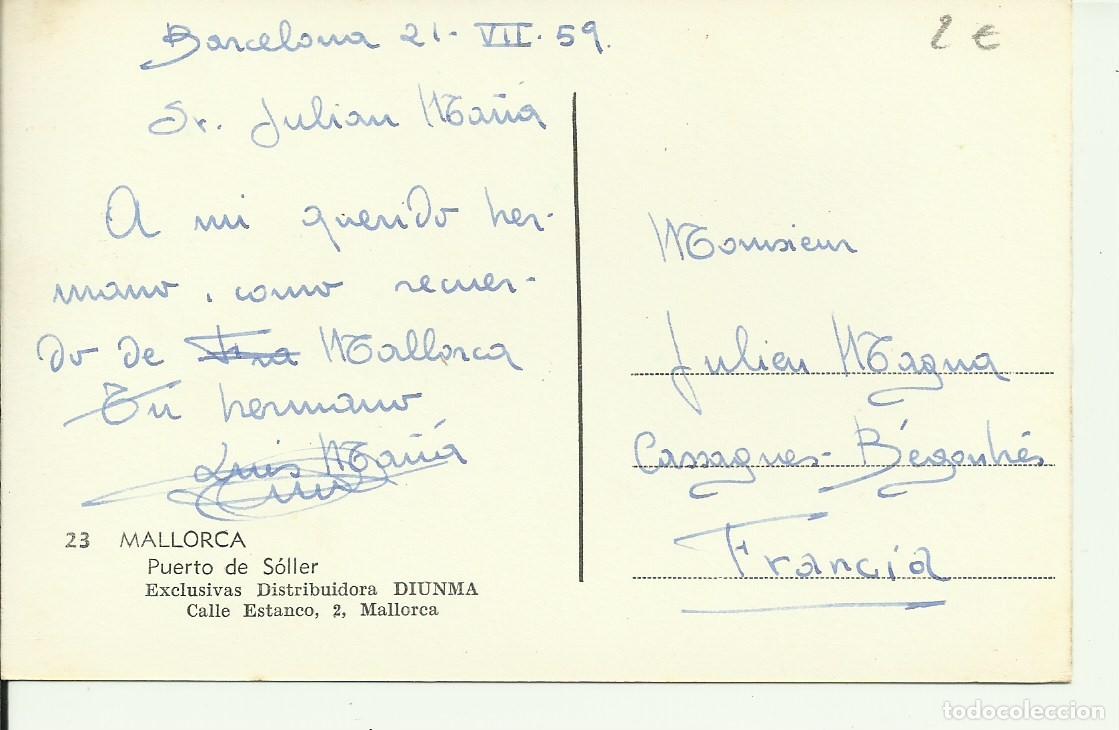 Barcelona 21-VII-59.
2 €
Sr. Julian Mañá
A mi querido her-
mano, como recuer-
do de Fra Mallorca
Tu hermano
Luis Mañá
23 MALLORCA
Puerto de Sóller
Exclusivas Distribuidora DIUNMA
Calle Estanco, 2, Mallorca
Monsieur
Julien Magna
Cassagnes-Bégonhés
Francia
todocoleccion